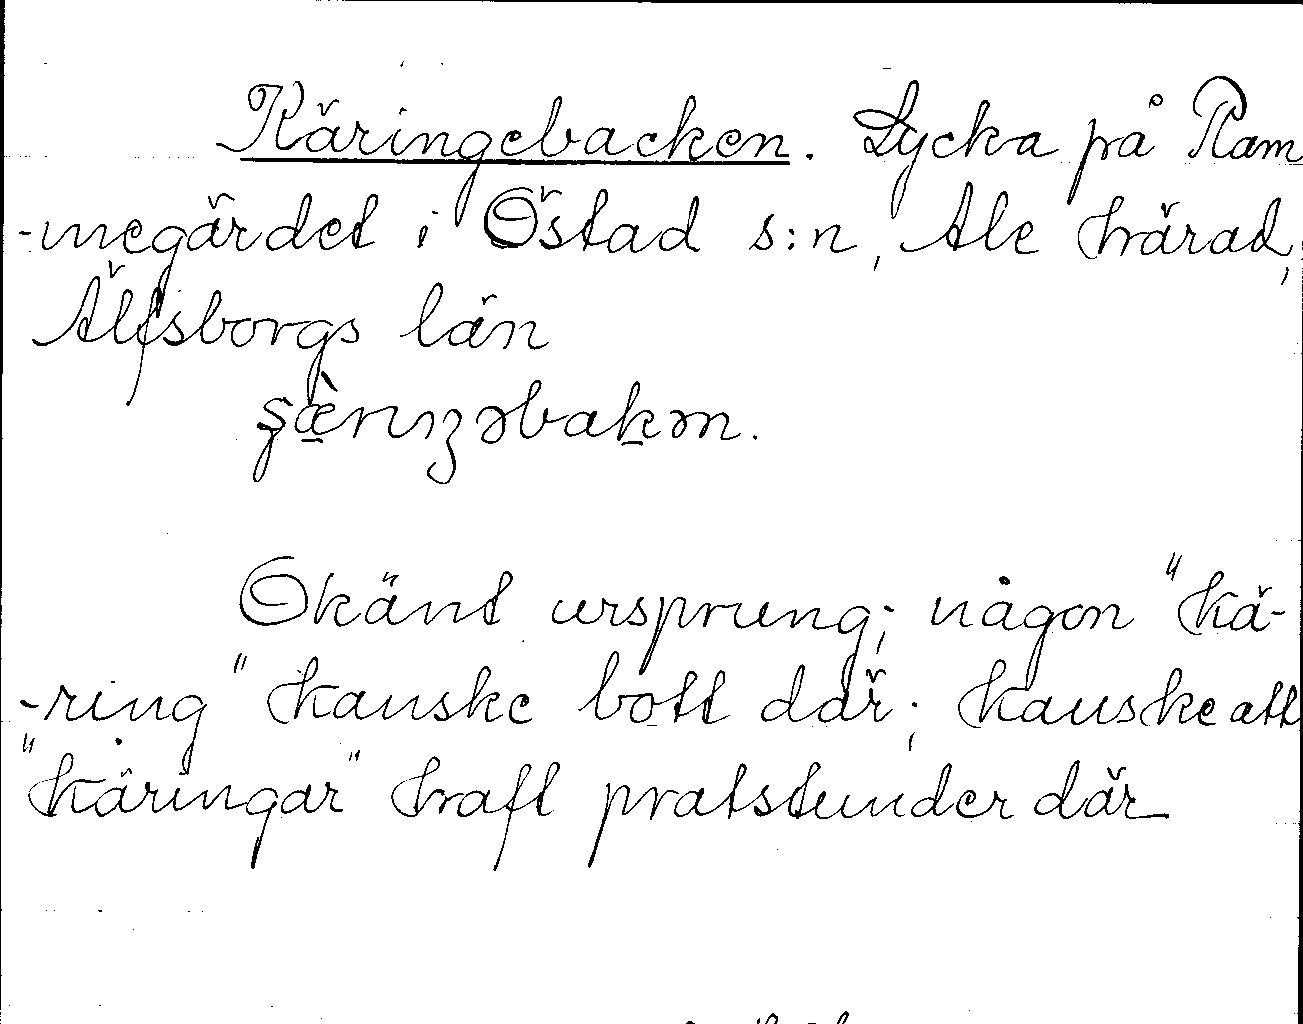 Käringebacken. Lycka på Ram
-megärdet i Östad s:n, Ale härad,
Älfsborgs län
Okänt ursprung; någon "kä-
-ring" kanske bott där; kanske att
"käringar" haft pratstunder där